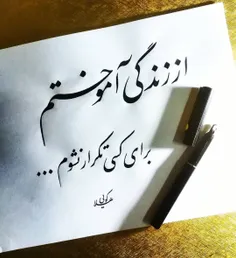 از زندگی آموختم
برای کسی تکرار نشوم ...